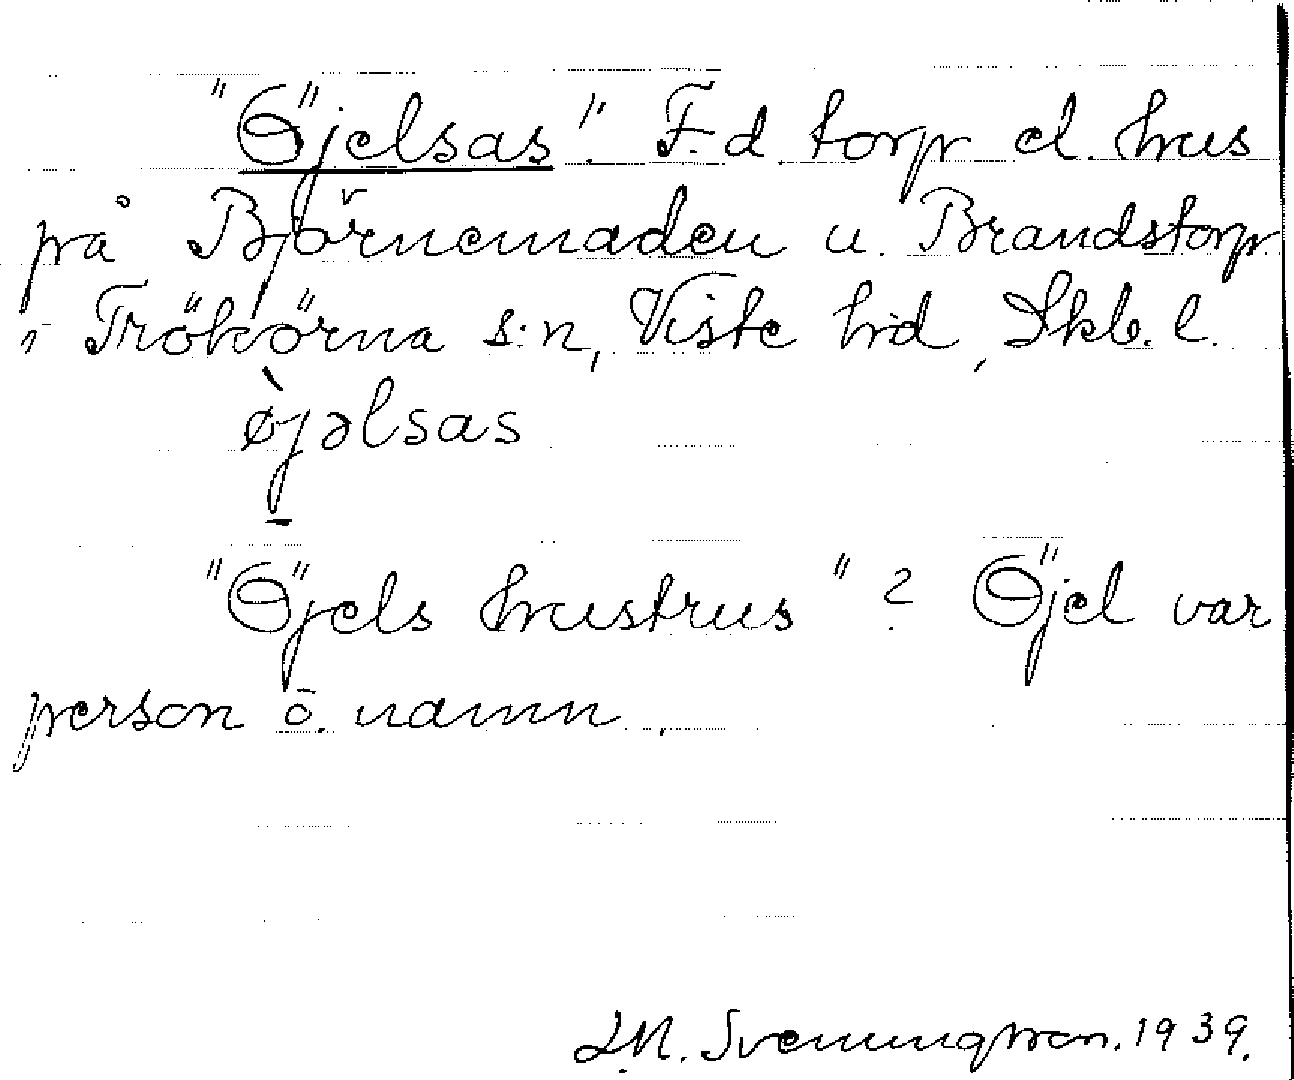 "Öjelsas". F.d. torp el. hus
på Björnemaden u. Brandstorp
i Trökörna s:n, Viste hd, Skb. l.
ø̀jəlsas
"Öjels hustrus"? Öjel var
person ö. namn.
Svenungsson. 1939.